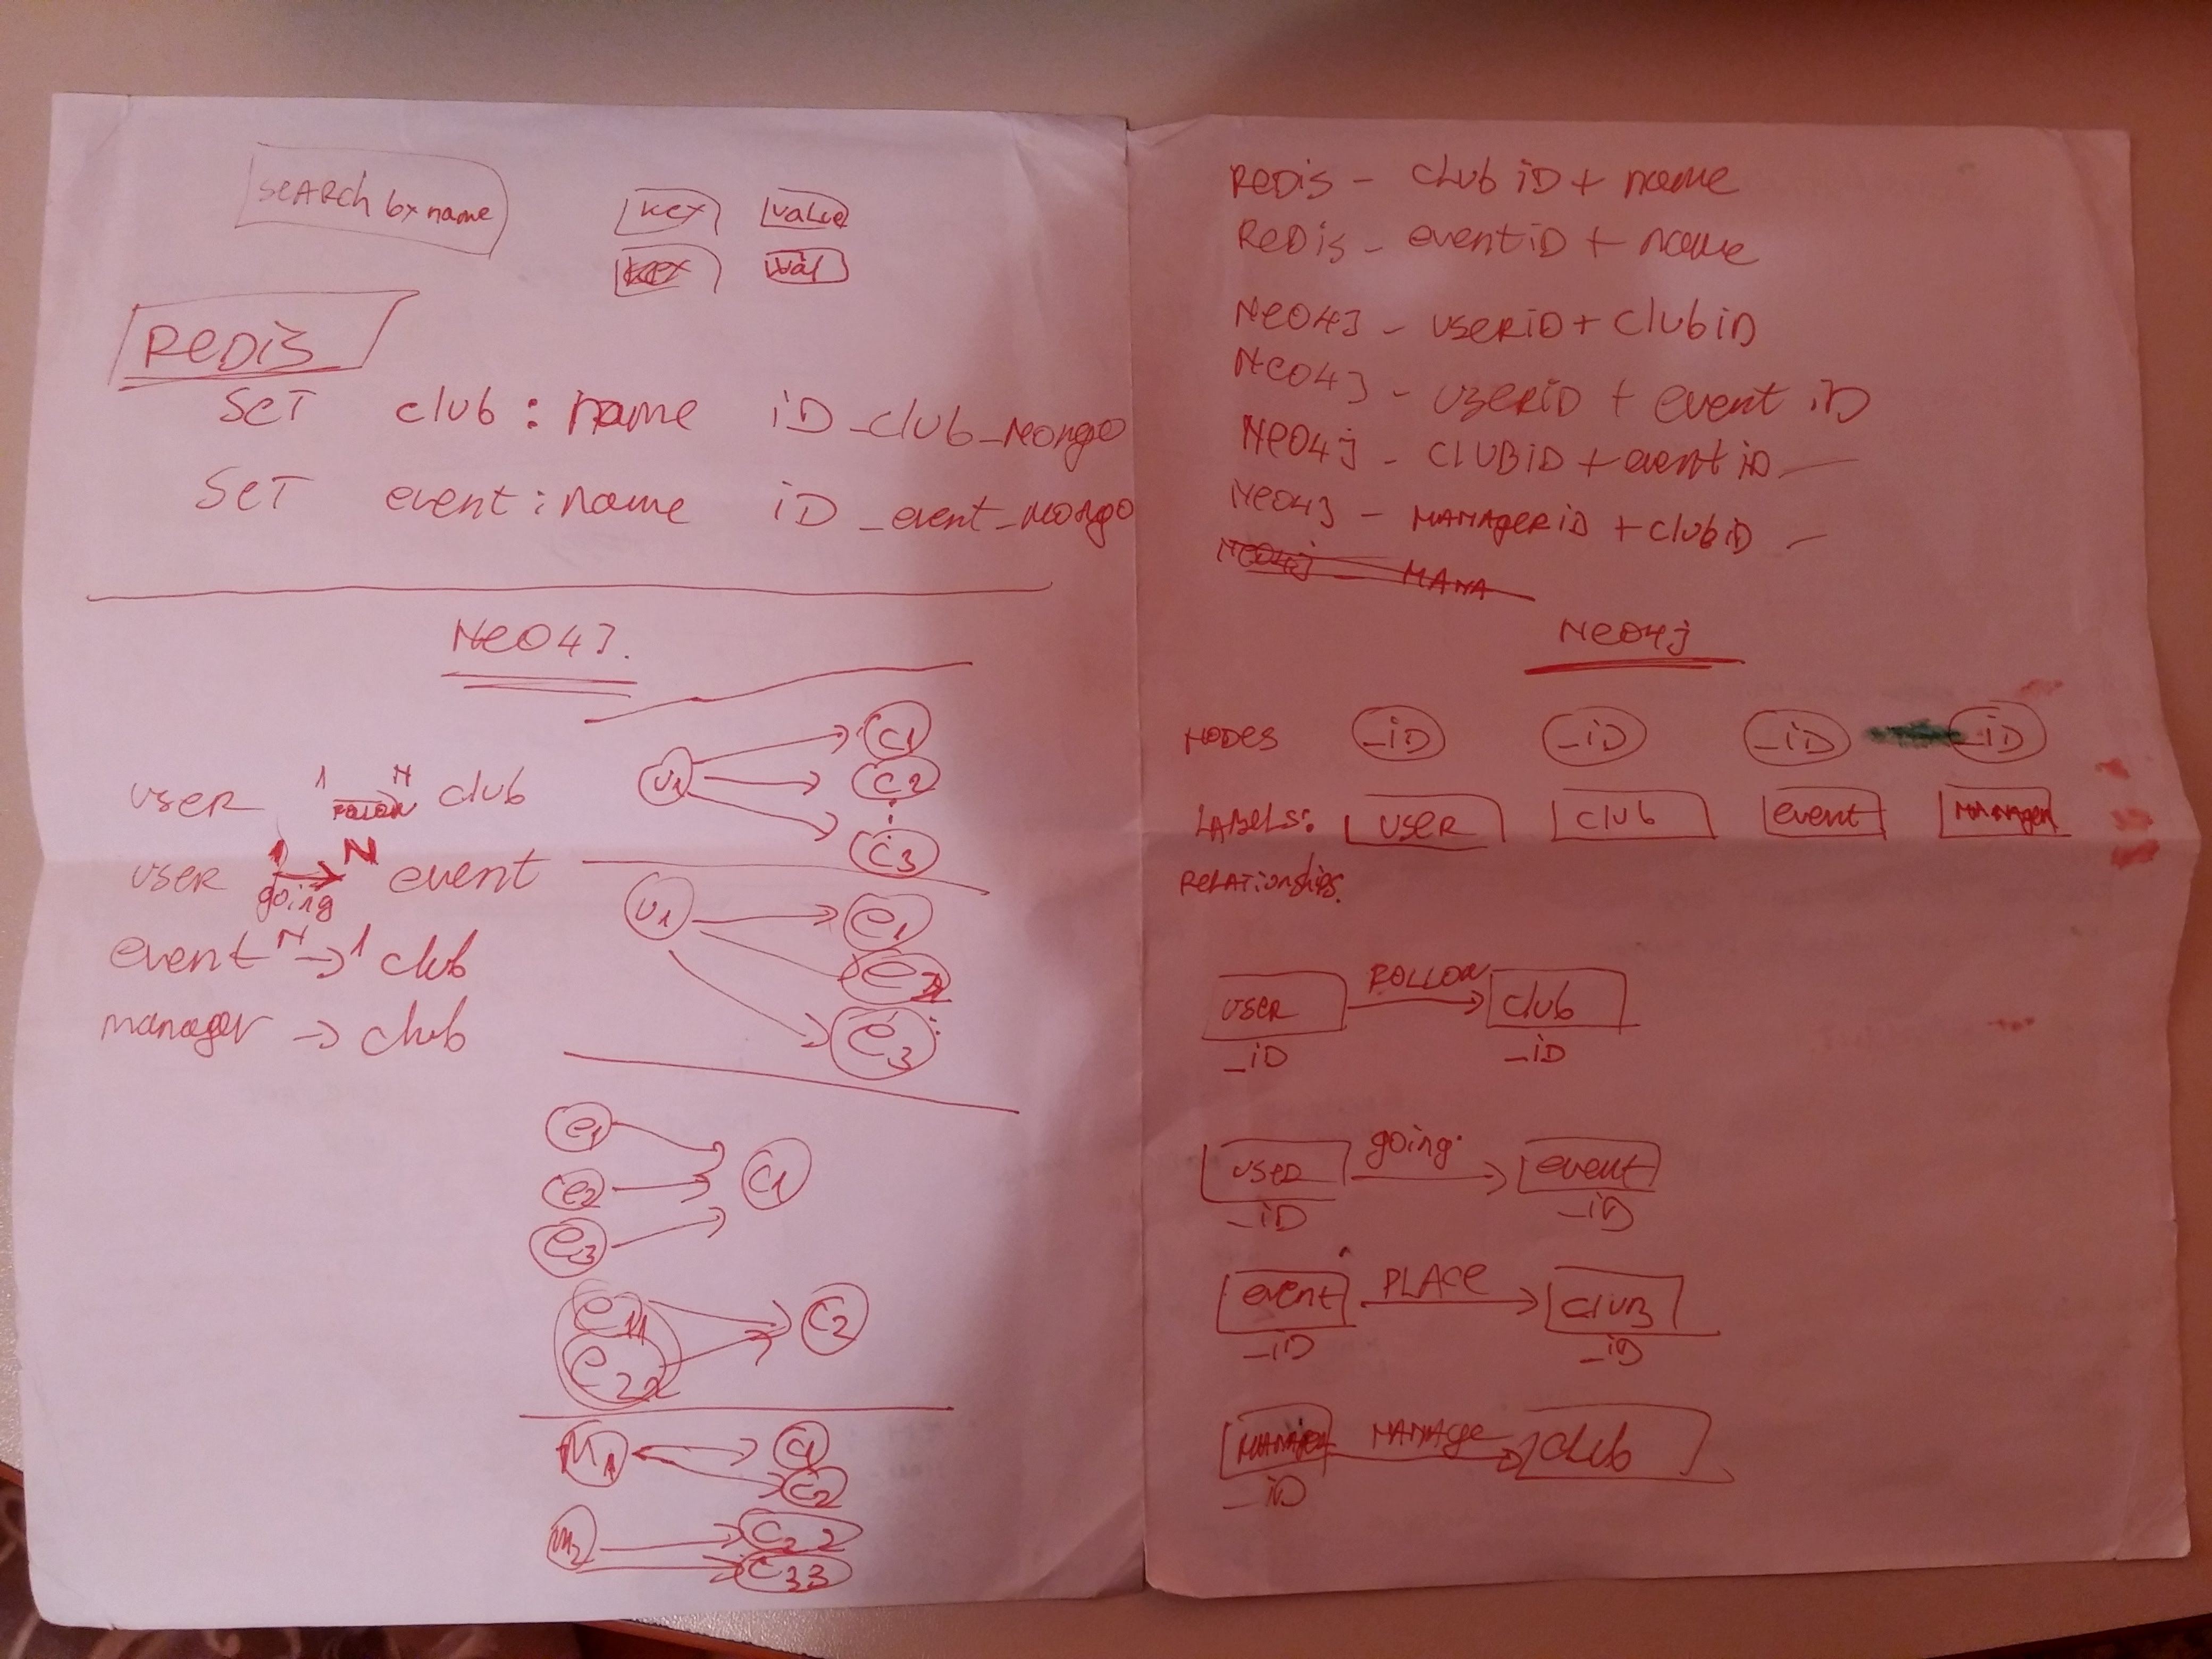 SEARCH by name
KEY value
KEY val
REDIS
SET club : name iD_club_mongo
SET event : name iD_event_mongo
Neo4J.
user 1 follow N club
user 1 going N event
event N → 1 club
manager → club
U1 C1
C2
C3
U1 e1
e2
e3
e1
e2 C1
e3
e11
e22 C2
M1 C1
C2
M2 C22
C33
REDIS - club iD + name
Redis - eventiD + name
Neo4J - useriD + clubiD
Neo4J - useriD + event iD
Neo4j - CLUBiD + eventiD
Neo4J - MANAgeriD + clubiD
Neo4j - MANA
Neo4J
NODES _iD _iD _iD _iD
LABELS: USER club event MANAger
RELATIONShips
USER FOLLOW club
_iD _iD
USER going event
_iD _iD
event PLACE CLUB
_iD _iD
MANAger MANAge club
_iD